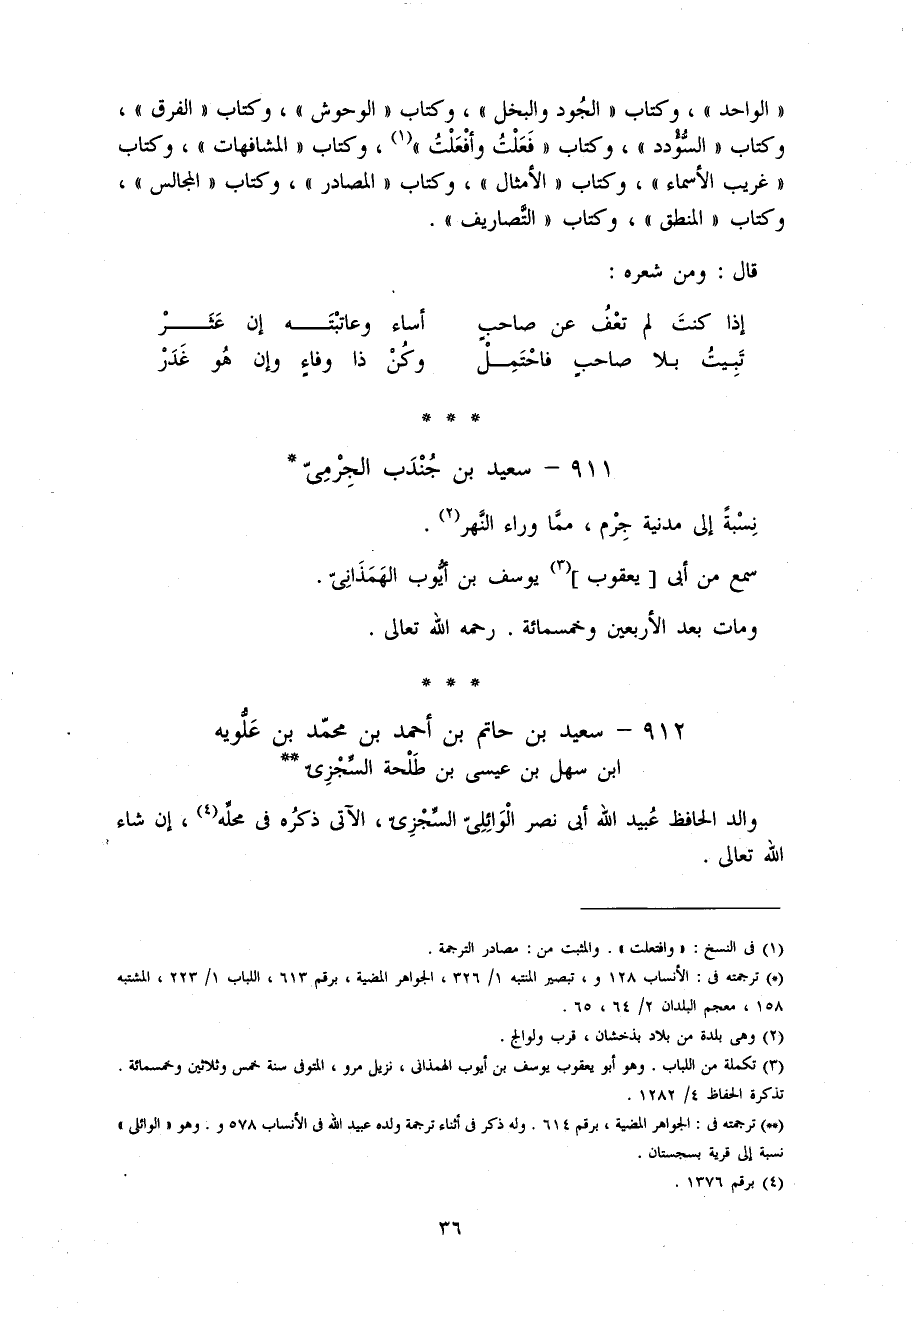 « الواحد » ، وكتاب « الجُود والبخل » ، وكتاب « الوحوش » ، وكتاب « الفرق » ،
وكتاب « السُّؤْدد » ، وكتاب « فَعَلْتُ وأفْعَلْتُ »(١) ، وكتاب « المشافهات » ، وكتاب
« غريب الأسماء » ، وكتاب « الأمثال » ، وكتاب « المصادر » ، وكتاب « المجالس » ،
وكتاب « المنطق » ، وكتاب « التَّصاريف » .
قال : ومن شعره :
إذا كنتَ لم تعْفُ عن صاحبٍ أساء وعاتبْتَـــه إن عَثَـــرْ
تَبِيتُ بلا صاحبٍ فاحْتَمِـلْ وكُنْ ذا وفاءٍ وإن هُو غَدَرْ
* * *
٩١١ – سعيد بن جُنْدَب الجِرْمِىّ *
نِسْبةً إلى مدنية جِرْم ، ممَّا وراء النَّهر(٢) .
سمع من أبى [ يعقوب ](٣) يوسف بن أيُّوب الهَمَذَانِىّ .
ومات بعد الأربعين وخمسمائة . رحمه الله تعالى .
* * *
٩١٢ – سعيد بن حاتم بن أحمد بن محمّد بن عَلُّويه
ابن سهل بن عيسى بن طَلْحة السِّجْزِىّ **
والد الحافظ عُبيد الله أبى نصر الْوَائِلِىّ السِّجْزِىّ ، الآتى ذكرُه فى محلِّه(٤) ، إن شاء
الله تعالى .
(١) فى النسخ : « وافتعلت » . والمثبت من : مصادر الترجمة .
(*) ترجمته فى : الأنساب ١٢٨ و ، تبصير المنتبه ١/ ٣٢٦ ، الجواهر المضية ، برقم ٦١٣ ، اللباب ١/ ٢٢٣ ، المشتبه
١٥٨ ، معجم البلدان ٢/ ٦٤ ، ٦٥ .
(٢) وهى بلدة من بلاد بذخشان ، قرب ولوالج .
(٣) تكملة من اللباب . وهو أبو يعقوب يوسف بن أيوب الهمذانى ، نزيل مرو ، المتوفى سنة خمس وثلاثين وخمسمائة .
تذكرة الحفاظ ٤/ ١٢٨٢ .
(**) ترجمته فى : الجواهر المضية ، برقم ٦١٤ . وله ذكر فى أثناء ترجمة ولده عبيد الله فى الأنساب ٥٧٨ و . وهو « الوائلى »
نسبة إلى قرية بسجستان .
(٤) برقم ١٣٧٦ .
٣٦